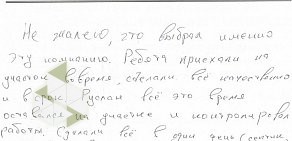 Не жалею, что выбрал именно
эту компанию. Ребята приехали на
участок вовремя, сделали всё качественно
и в срок. Руслан всё это время
оставался на участке и контролировал
работы. Сделали всё в один день